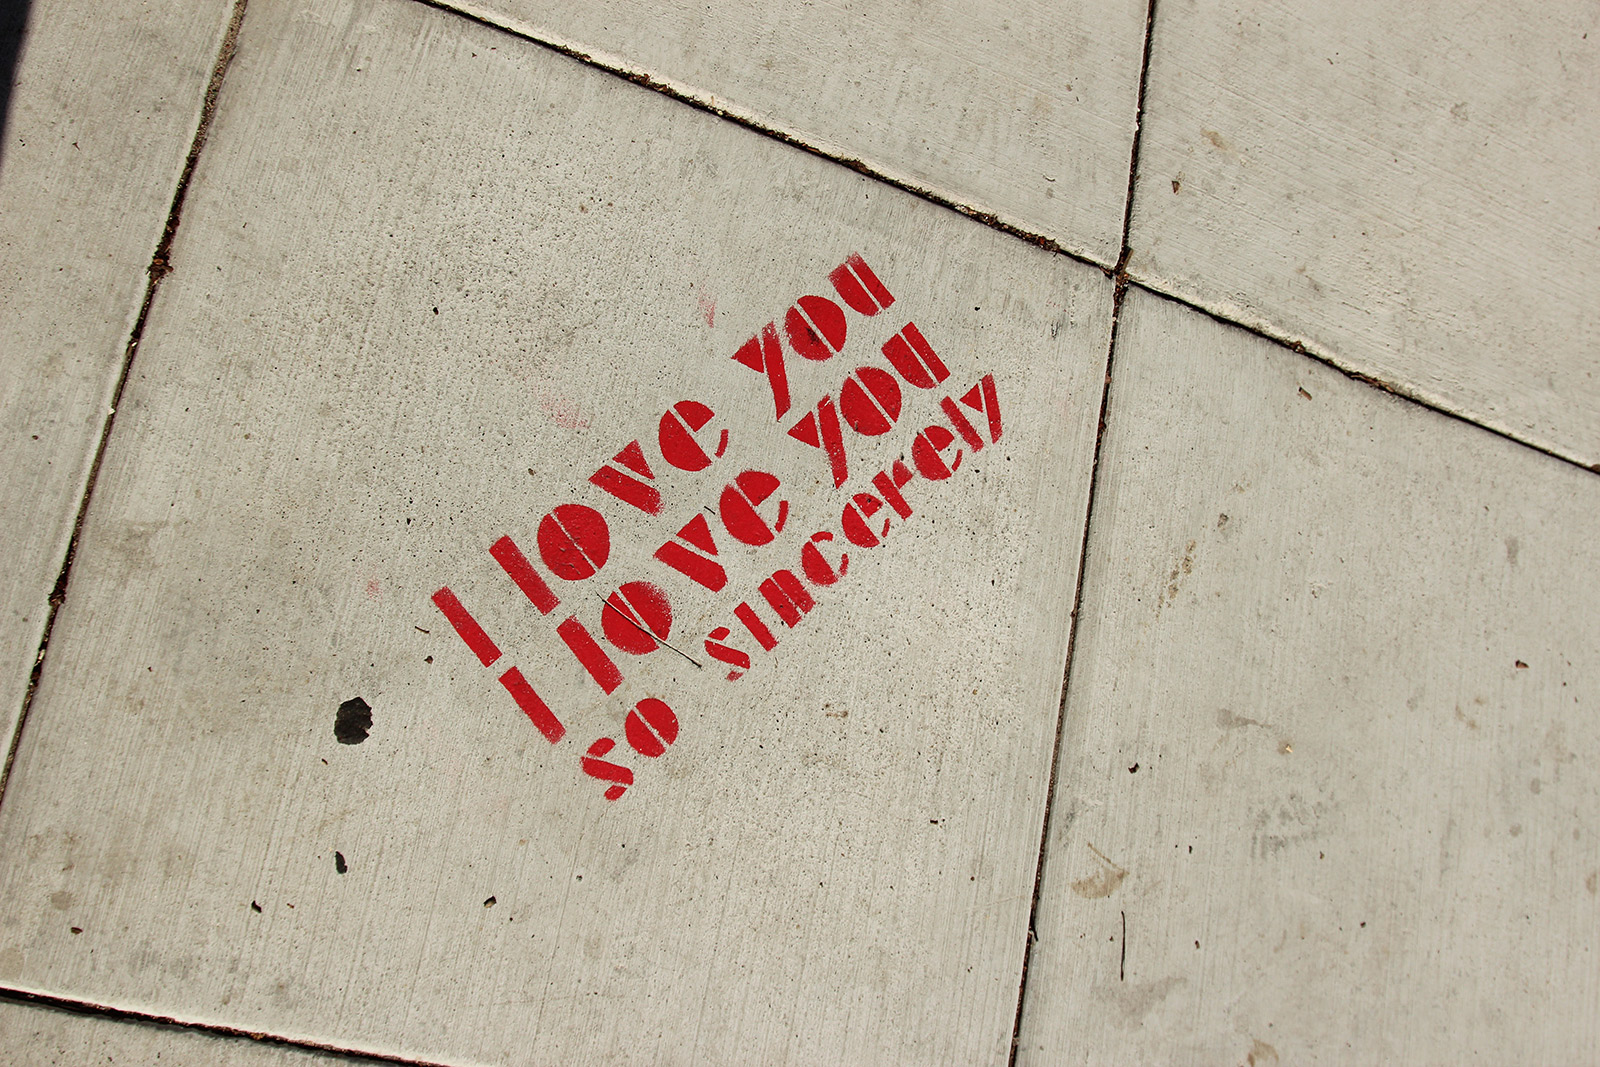 I love you
I love you
so sincerely